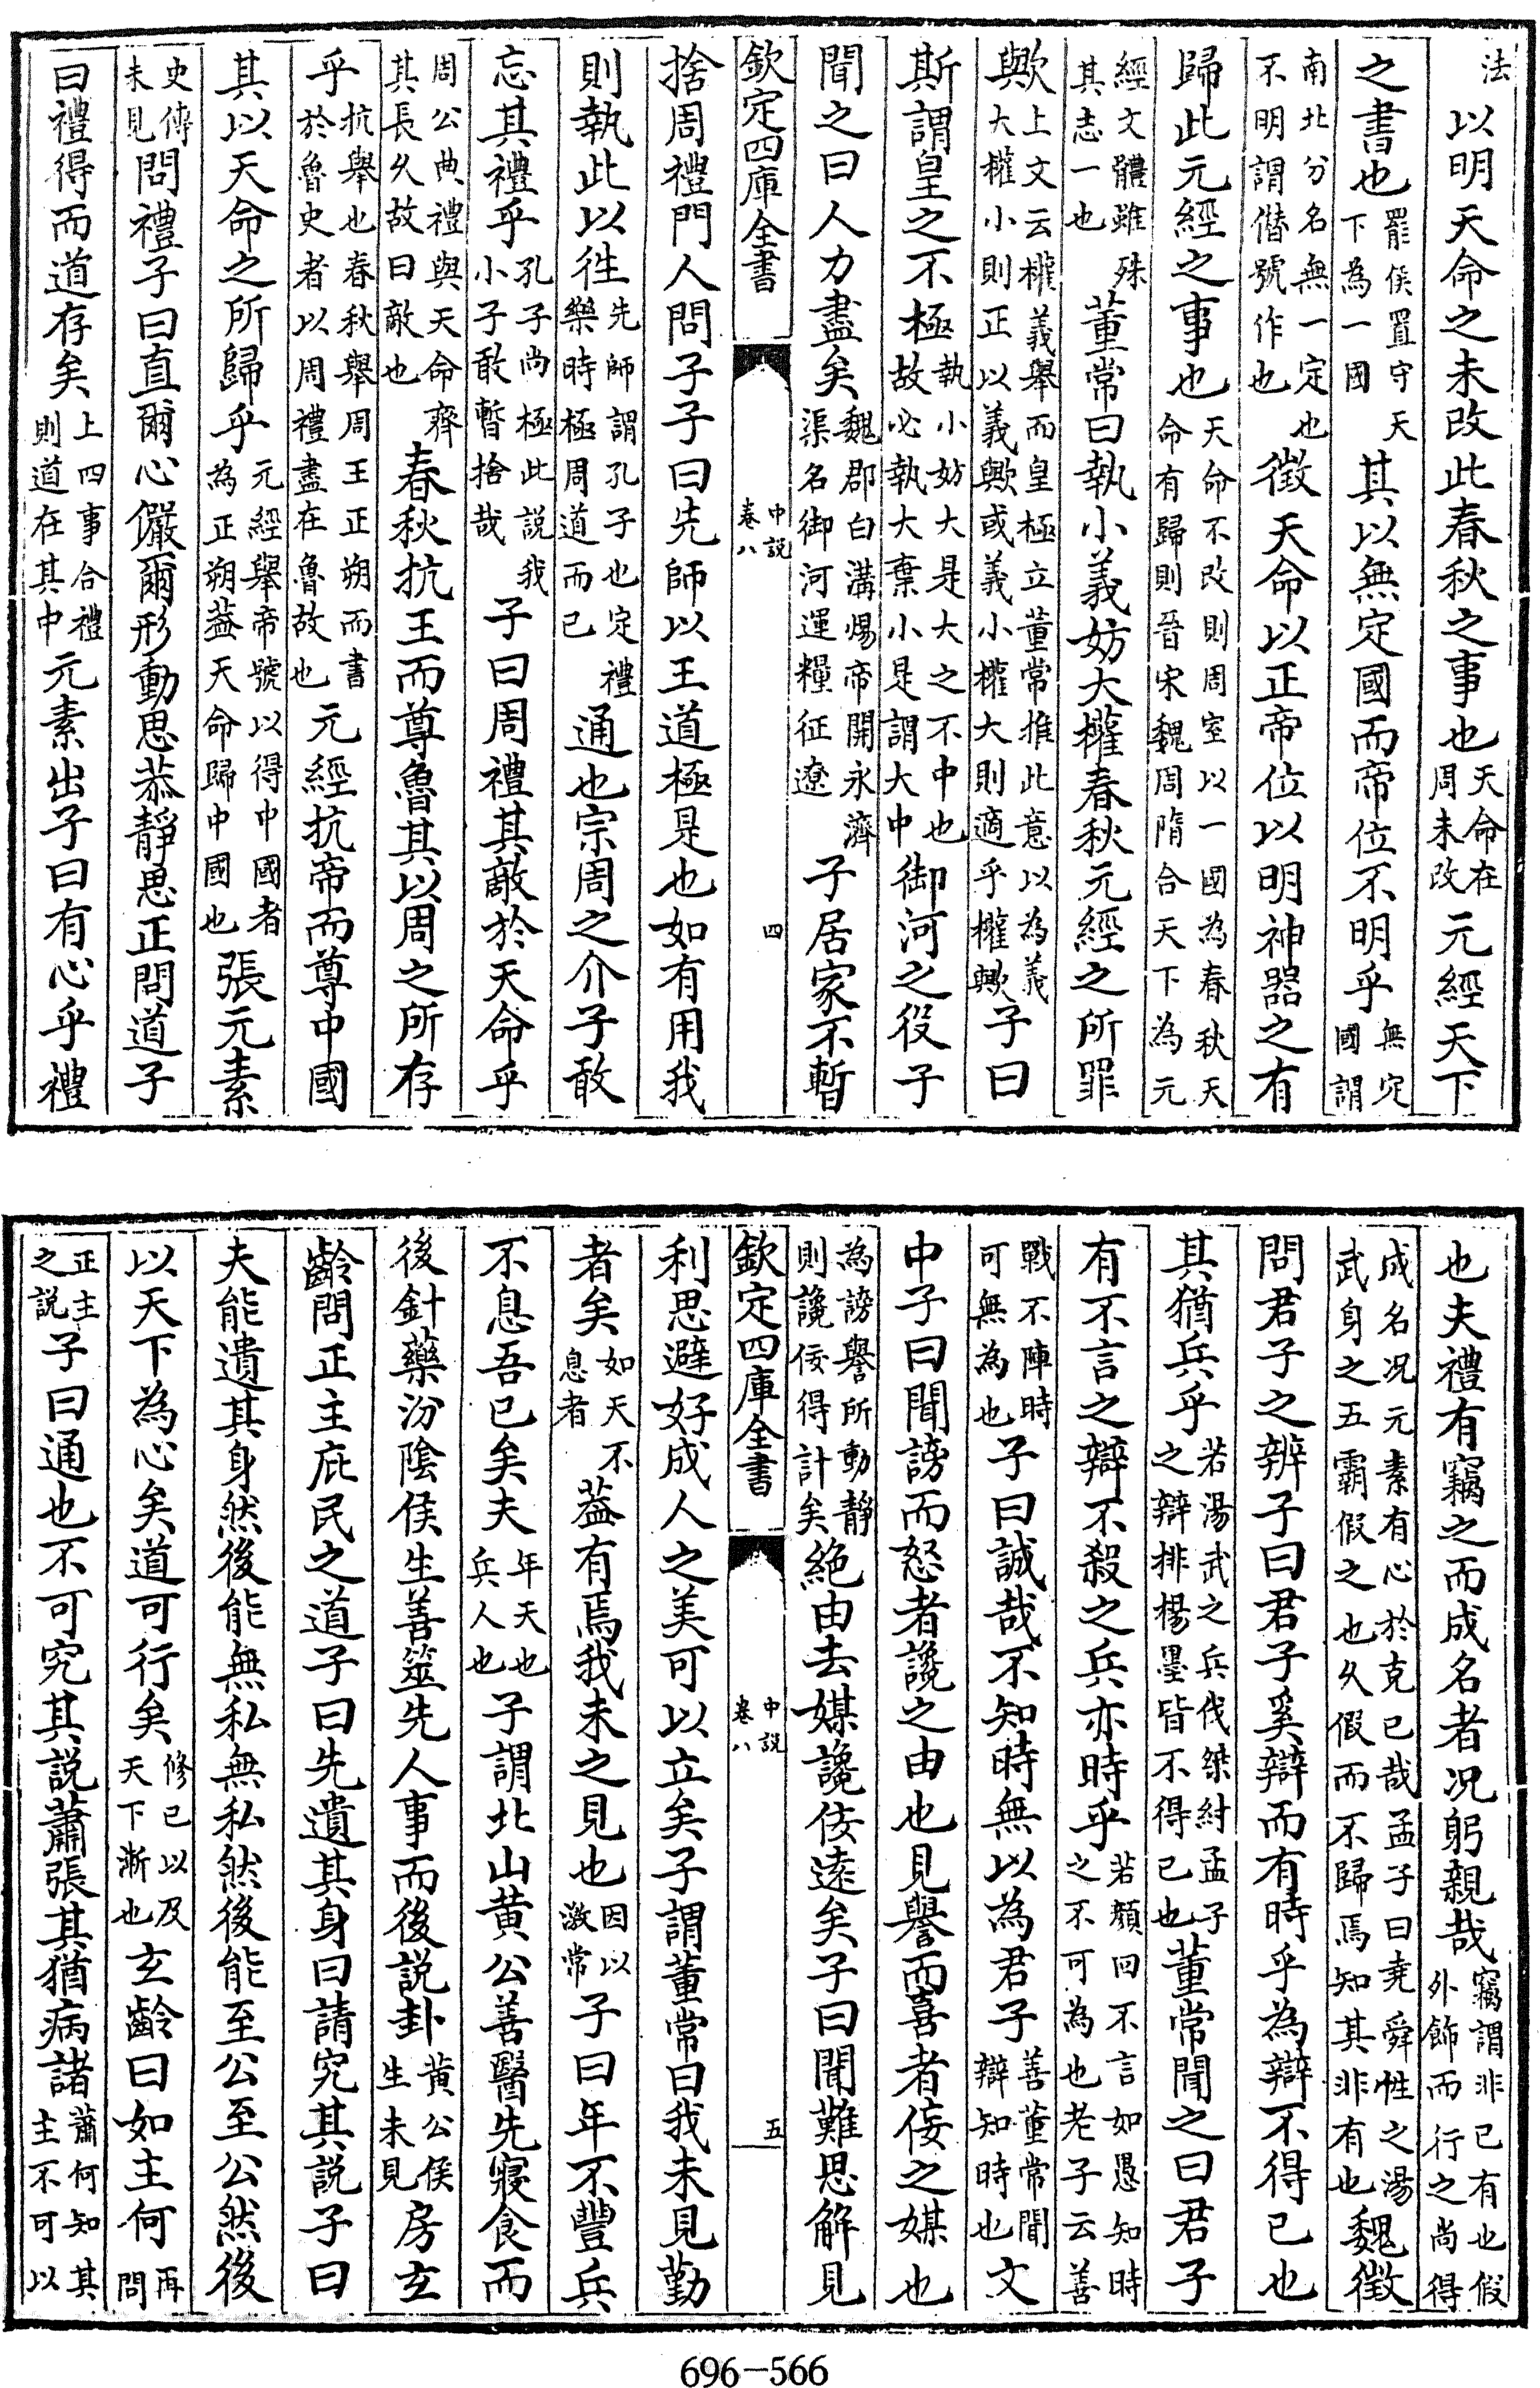 法以明天命之未改此春秋之事也天命在周未改元經天下
之書也罷侯置守天下為一國其以無定國而帝位不明乎無定國謂
南北分名無一定也不明謂僣號作也徵天命以正帝位以明神器之有
歸此元經之事也天命不改則周室以一國為春秋天命有歸則晉宋魏周隋合天下為元
經文體雖殊其志一也董常曰執小義妨大權春秋元經之所罪
歟上文云權義舉而皇極立董常推此意以為義大權小則正以義歟或義小權大則適乎權歟子曰
斯謂皇之不極執小妨大是大之不中也故必執大棄小是謂大中御河之役子
聞之曰人力盡矣魏郡白溝煬帝開永濟渠名御河運糧征遼子居家不暫
欽定四庫全書 中說 卷八 四
捨周禮門人問子子曰先師以王道極是也如有用我
則執此以徃先師謂孔子也定禮樂時極周道而已通也宗周之介子敢
忘其禮乎孔子尚極此説我小子敢暫捨哉子曰周禮其敵於天命乎
周公典禮與天命齊其長久故曰敵也春秋抗王而尊魯其以周之所存
乎抗舉也春秋舉周王正朔而書於魯史者以周禮盡在魯故也元經抗帝而尊中國
其以天命之所歸乎元經舉帝號以得中國者為正朔葢天命歸中國也張元素
史傳未見問禮子曰直爾心儼爾形動思恭靜思正問道子
曰禮得而道存矣上四事合禮則道在其中元素出子曰有心乎禮
也夫禮有竊之而成名者况躬親哉竊謂非已有也假外飾而行之尚得
成名况元素有心於克已哉孟子曰堯舜性之湯武身之五霸假之也久假而不歸焉知其非有也魏徵
問君子之辨子曰君子奚辯而有時乎為辯不得已也
其猶兵乎若湯武之兵伐桀紂孟子之辯排楊墨皆不得已也董常聞之曰君子
有不言之辯不殺之兵亦時乎若顔回不言如愚知時之不可為也老子云善
戰不陣時可無為也子曰誠哉不知時無以為君子善董常聞辯知時也文
中子曰聞謗而怒者讒之由也見譽而喜者佞之媒也
為謗譽所動靜則讒佞得計矣絶由去媒讒佞遠矣子曰聞難思解見
欽定四庫全書 中說 卷八 五
利思避好成人之美可以立矣子謂董常曰我未見勤
者矣如天不息者葢有焉我未之見也因以激常子曰年不豐兵
不息吾已矣夫年天也兵人也子謂北山黄公善醫先寢食而
後針藥汾陰侯生善筮先人事而後説卦黄公侯生未見房玄
齡問正主庇民之道子曰先遺其身曰請究其説子曰
夫能遺其身然後能無私無私然後能至公至公然後
以天下為心矣道可行矣修已以及天下漸也玄齡曰如主何再問
正主之説子曰通也不可究其説蕭張其猶病諸蕭何知其主不可以
696-566